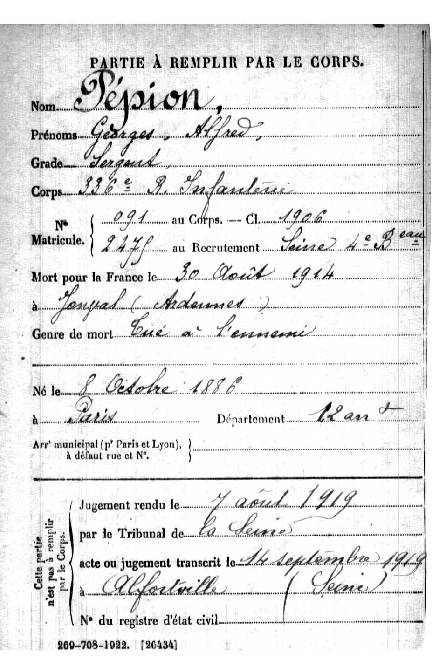 PARTIE À REMPLIR PAR LE CORPS.
Nom Pépion,
Prénoms Georges, Alfred,
Grade Sergent
Corps 336e R. Infanterie
N° Matricule. { 091 au Corps. — Cl. 1906
2275 au Recrutement Seine 4e Beau
Mort pour la France le 30 Août 1914
à (Ardennes)
Genre de mort Tué à l'ennemi
Né le 8 Octobre 1886
à Paris Département 12 arrt
Arrt municipal (pr Paris et Lyon),
à défaut rue et N°.
Cette partie n'est pas à remplir par le Corps.
Jugement rendu le 7 août 1919
par le Tribunal de la Seine
acte ou jugement transcrit le 14 septembre 1919
à Alfortville (Seine)
N° du registre d'état civil
269-708-1922. [26434]